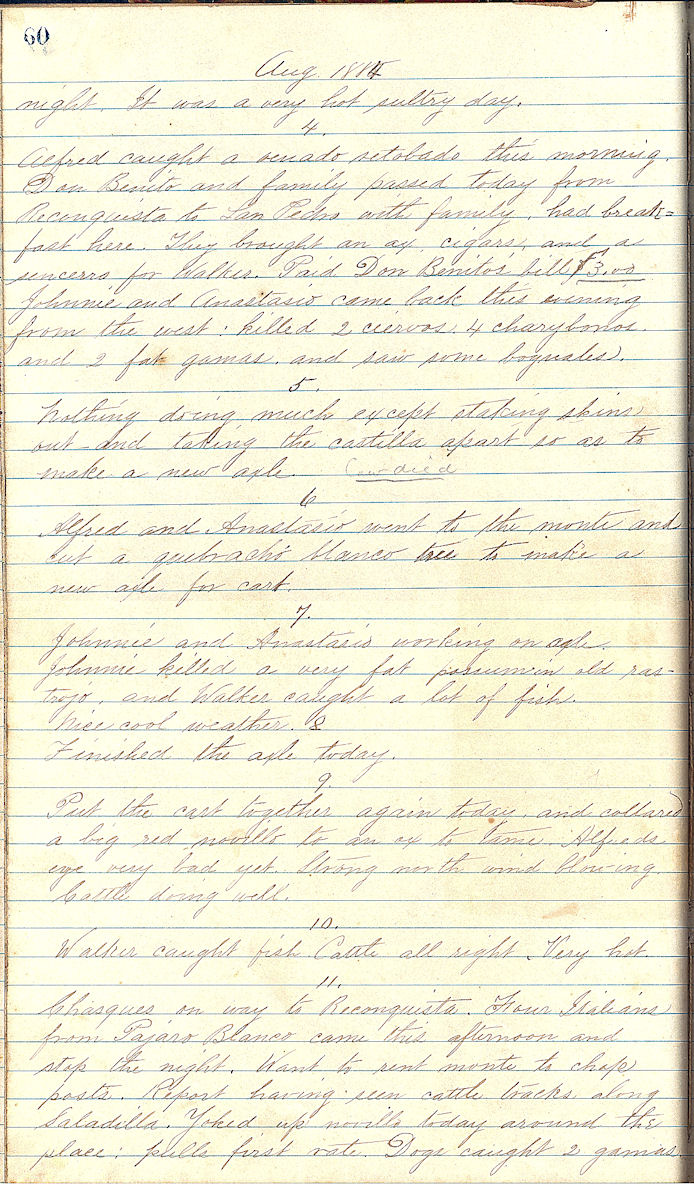 60
Aug. 1884
night. It was a very hot sultry day.
4.
Alfred caught a venado retobado this morning.
Don Benito and family passed today from
Reconquista to San Pedro with family, had break=
fast here. They brought an ax, cigars, and a
sincerro for Walker. Paid Don Benito's bill $3.00
Johnnie and Anastasio came back this evening
from the west: killed 2 ciervos, 4
and 2 fat gamas, and saw some boguales.
5.
Nothing doing much except staking skins
out and taking the castilla apart so as to
make a new axle. Cow died
6
Alfred and Anastasio went to the monte and
cut a quebracho blanco tree to make a
new axle for cart.
7.
Johnnie and Anastasio working on axle.
Johnnie killed a very fat possum in old ras-
trojo, and Walker caught a lot of fish.
Nice cool weather. 8
Finished the axle today.
9.
Put the cart together again today, and collared
a big red novillo to an ox to tame. Alfreds
eye very bad yet. Strong north wind blowing.
Cattle doing well.
10.
Walker caught fish. Cattle all right. Very hot.
11.
Chasques on way to Reconquista. Four Italians
from Pajaro Blanco came this afternoon and
stop the night. Want to rent monte to chop
posts. Report having seen cattle tracks along
Saladilla. Yoked up novillo today around the
place: pulls first rate. Dogs caught 2 gamas.